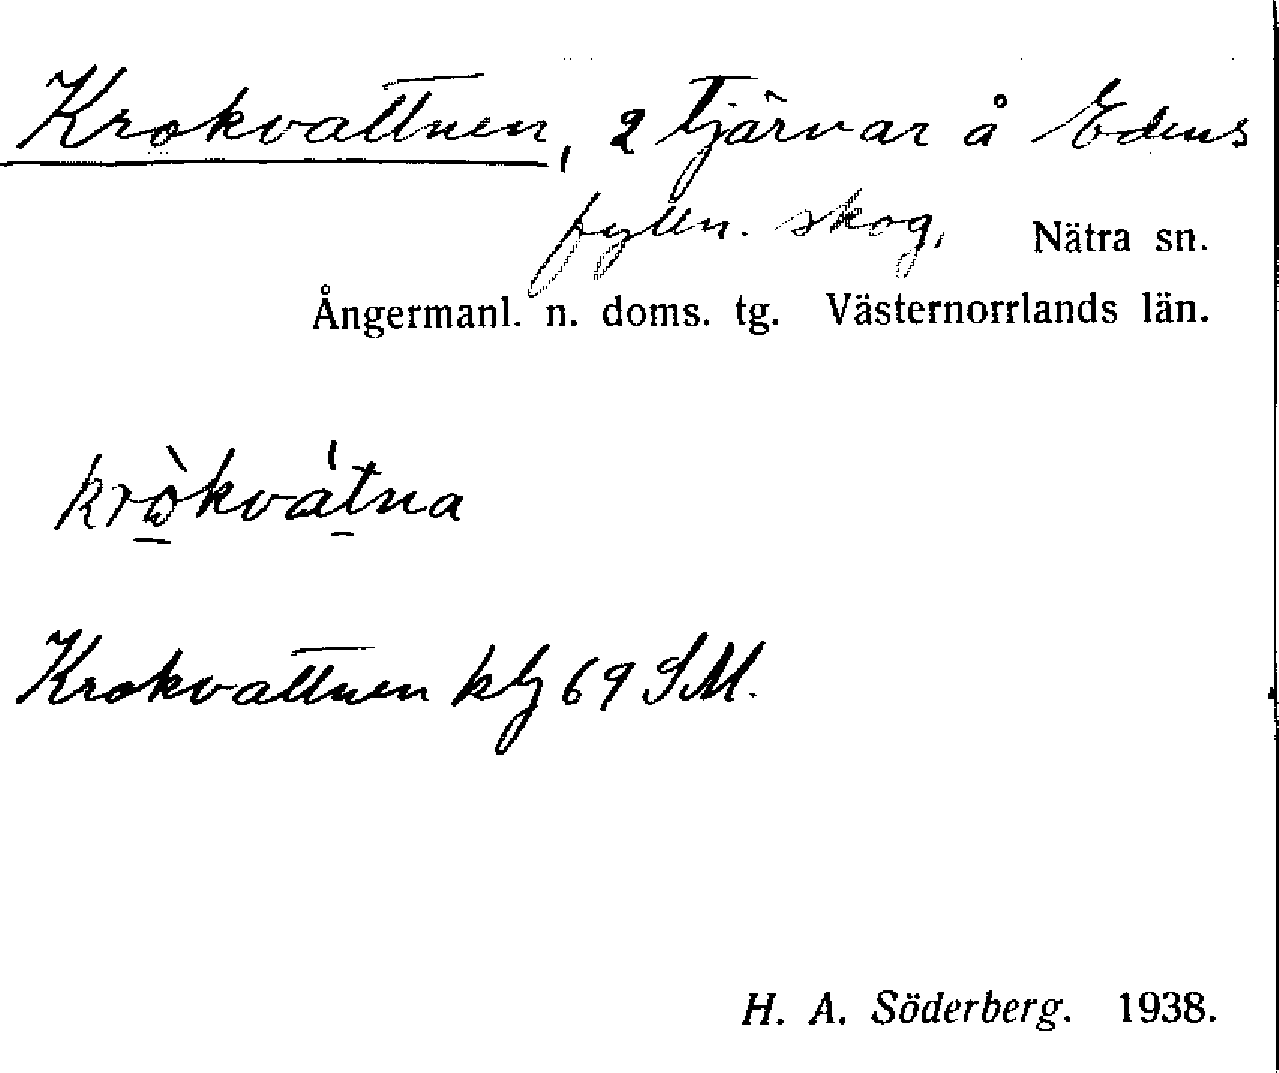 Krokvattnen, 2 tjärnar å Edens
fylln. skog, Nätra sn.
Ångermanl. n. doms. tg. Västernorrlands län.
kròkvátna
Krokvattnen 69 SM.
H. A. Söderberg. 1938.